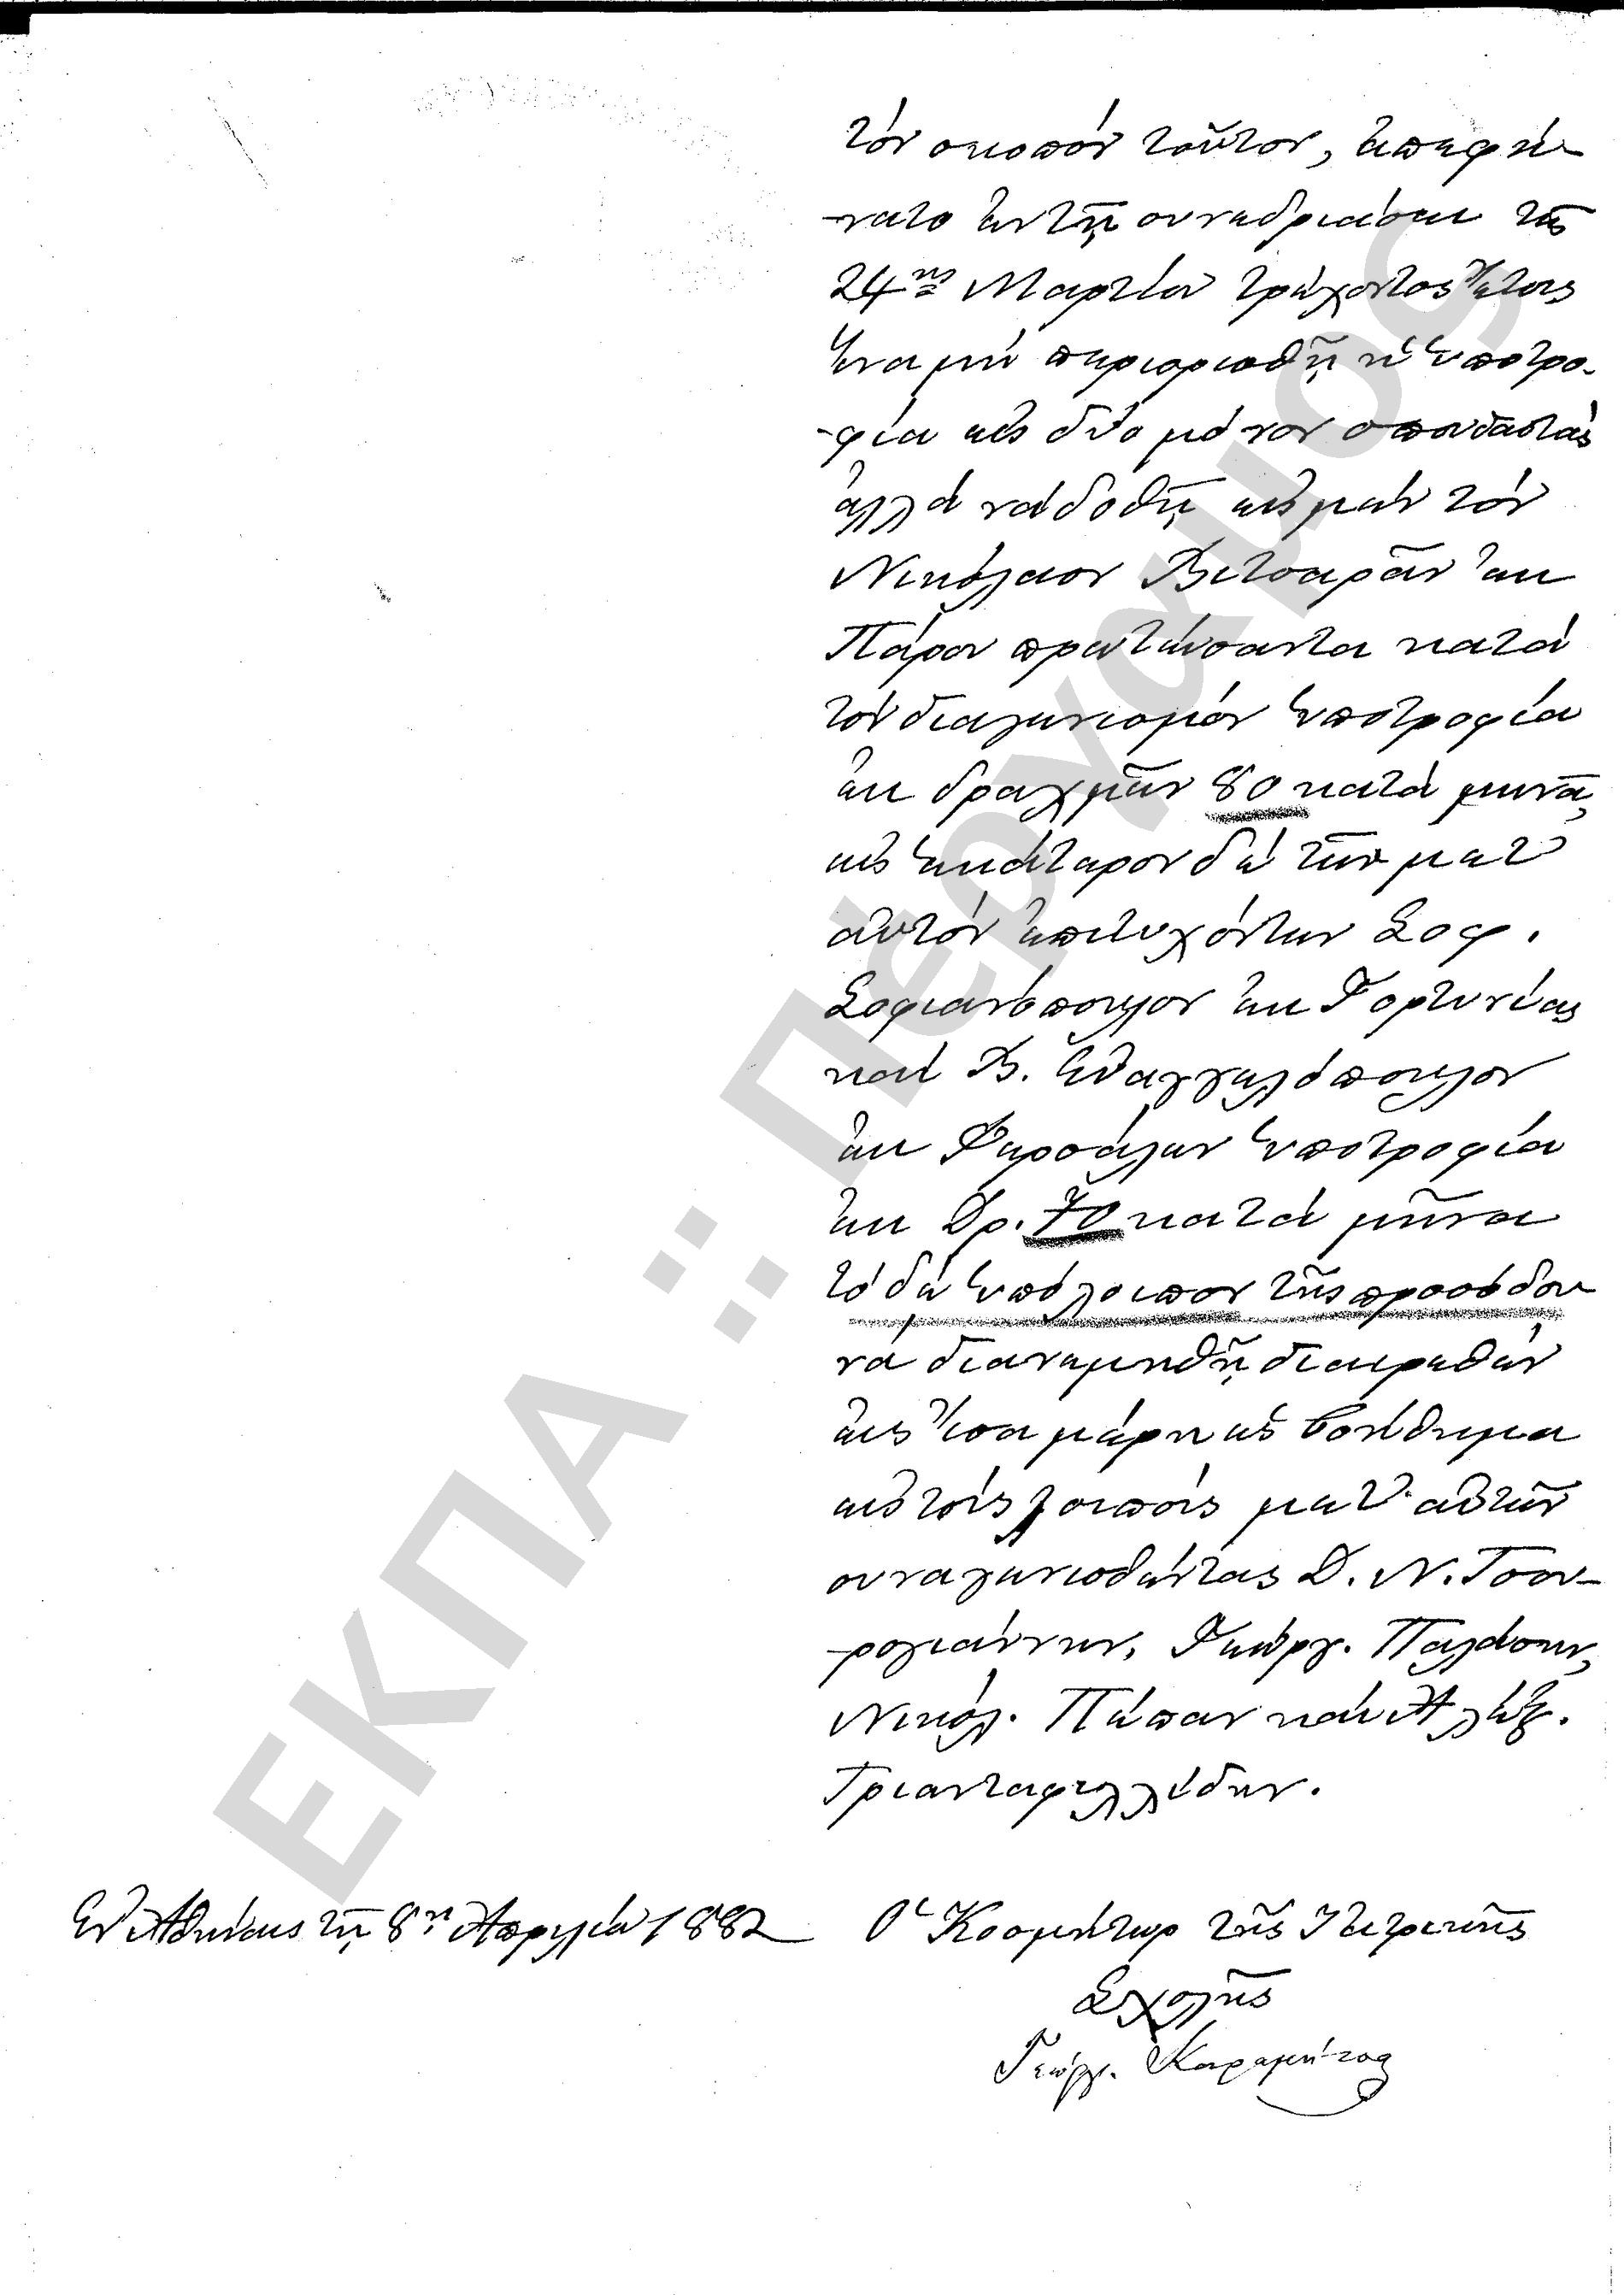 τόν σκοπόν τοῦτον, ἀπεφή-
-νατο ἐν τῇ συνεδριάσει τῆς
24ης Μαρτίου τρέχοντος ἔτους
ἵνα μή περιορισθῇ ἡ ὑποτρο-
-φία εἰς δύο μόνον σπουδαστάς
ἀλλά νά δοθῇ εἰς μέν τόν
Νικόλαον Βιτσαρᾶν ἐκ
Πάρου πρωτεύσαντα κατά
τόν διαγωνισμόν ὑποτροφία
ἐκ δραχμῶν 80 κατά μῆνα,
εἰς ἑκάτερον δέ τῶν μετ'
αὐτόν ἐπιτυχόντων Σοφ.
Σοφιανόπουλον ἐκ Γορτυνίας
καί Β. Εὐαγγελόπουλον
ἐκ Φερσάλων ὑποτροφία
ἐκ Δρ. 70 κατά μῆνα
τό δέ ὑπόλοιπον τῆς προσόδου
νά διανεμηθῇ διαιρεθέν
εἰς ἴσα μέρη ὡς βοήθημα
εἰς τούς λοιπούς μετ' αὐτῶν
συναγωνισθέντας Δ. Ν. Τσου-
-ρογιάννην, Γεώργ. Παλάσκην,
Νικόλ. Πέππαν καί Ἀλέξ.
Τριανταφυλλίδην.
Ἐν Ἀθήναις τῇ 8ῃ Ἀπριλίου 1882
Ὁ Κοσμήτωρ τῆς Ἰατρικῆς
Σχολῆς
Γεώργ. Καραμήτσας
ΕΚΠΑ :: Πέργαμος